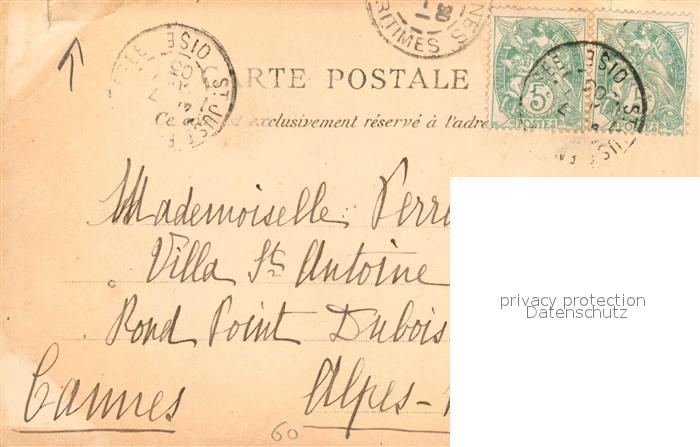 CARTE POSTALE
Ce côté est exclusivement réservé à l'adre
5c
POSTES
POSTES
ST JUST
OISE
OISE
RITIMES
Mademoiselle Perre
Villa St Antoine
Rond Point Dubois
Cannes Alpes-
privacy protection
Datenschutz
60